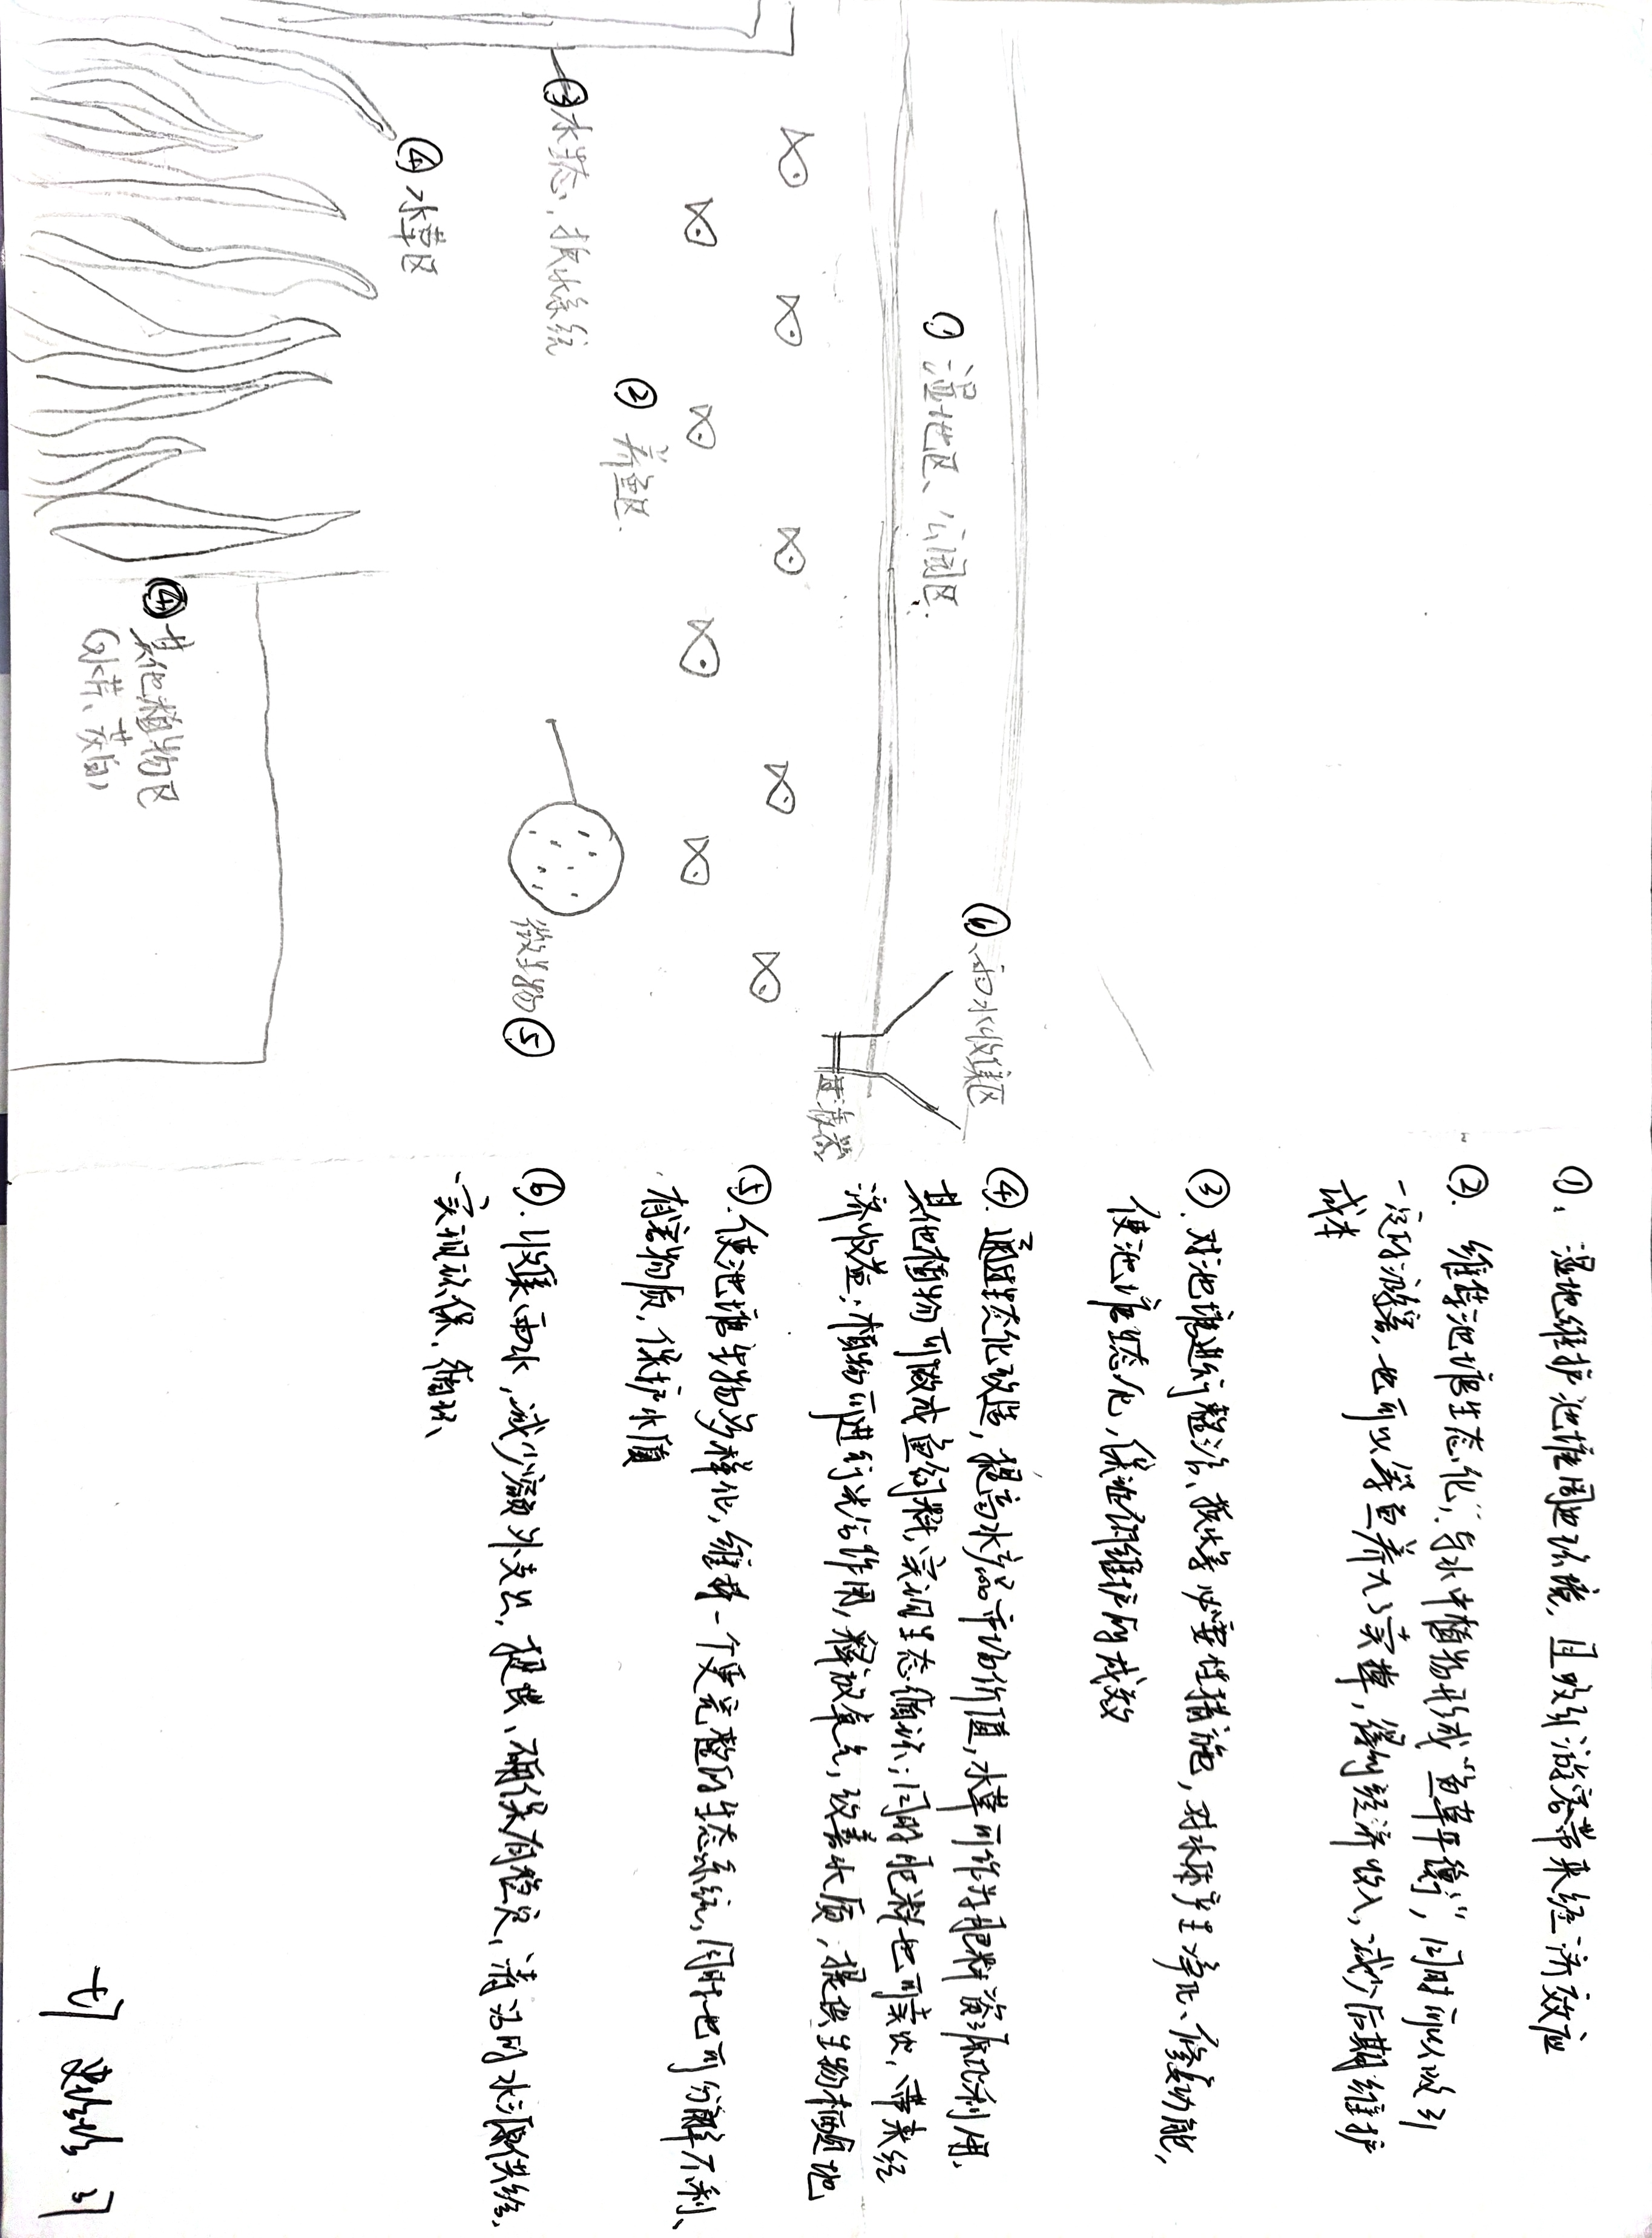 ①、湿地维护池塘周边环境，且吸引游客带来经济效应
②. 维持池塘生态化，与水中植物形成“鱼草平衡”，同时可以吸引
一定的游客，也可以等鱼养大了卖掉，得到经济收入，减少后期维护
成本
③、对池塘进行整治、换水等必要性措施，对水体产生净化、修复功能，
使池塘生态化，保证维护的成效
④. 通过生态化改造，提高水产品市场价值，水草可作为肥料资源化利用，
其他植物可做成鱼饲料，实现生态循环；同时肥料也可卖出，带来经
济收益；植物可进行光合作用，释放氧气，改善水质，提供生物栖息地
⑤. 使池塘生物多样化，维持一个更完整的生态系统，同时也可分解不利、
有害物质，保护水质
⑥. 收集雨水，减少额外支出，提供、确保有稳定、清洁的水源供给，
实现环保、循环
① 湿地区、公园区.
⑥、雨水收集区
过滤器
② 养鱼区.
③水生态，换水系统
微生物⑤
④ 水草区
④其他植物区
（水芹、茭白）